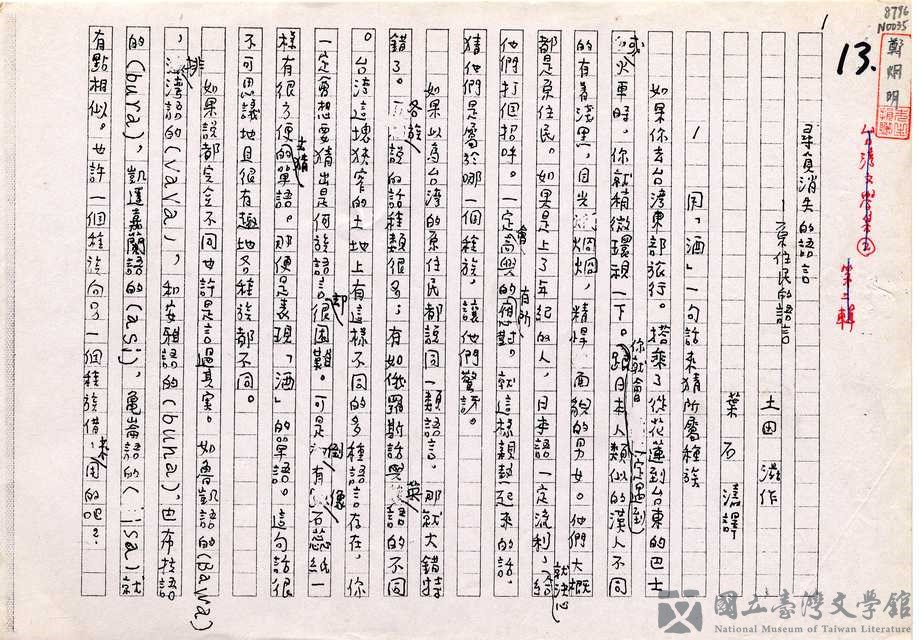 8796
N0035
1
13.
鄭烱明
台灣文學集②
第二輯
尋覓消失的語言
—原住民的語言
土田 滋作
葉石濤譯
1 用「酒」一句話來猜所屬種族
如果你去台灣東部旅行。搭乘了從花蓮到台東的巴士
或火車時，你就稍微環視一下。你就會一定遇到跟日本人類似的漢人不同
的有着淺黑，目光炯炯，精悍面貌的男女。他們大概
都是原住民。如果是上了年紀的人，日本語一定流利，就決心給
他們打個招呼。一定會高興的有所回應。就這樣親熱起來的話，
猜他們是屬於哪一個種族，讓他們驚訝。
如果以為台灣的原住民都說同一類語言。那就大錯特
錯了。各族說的話種類很多，有如俄羅斯話與英語的不同
。台灣這塊狹窄的土地上有這樣不同的多種語言存在，你
一定會想要猜出是何族語言卻很困難。可是倒有像石蕊紙一
樣有很方便的去猜單語。那便是表現「酒」的單語。這句話很
不可思議地且很有趣地各種族都不同。
如果說都完全不同也許是言過其實。如魯凱語的(Bava)
，排灣語的(vava)，和安雅語的(buha)，巴布拉語
的(bura)，凱達嘉蘭語的(asi)，龜崙語的(isa)就
有點相似。也許一個種族向另一個種族借來用的吧？
國立臺灣文學館
National Museum of Taiwan Literature